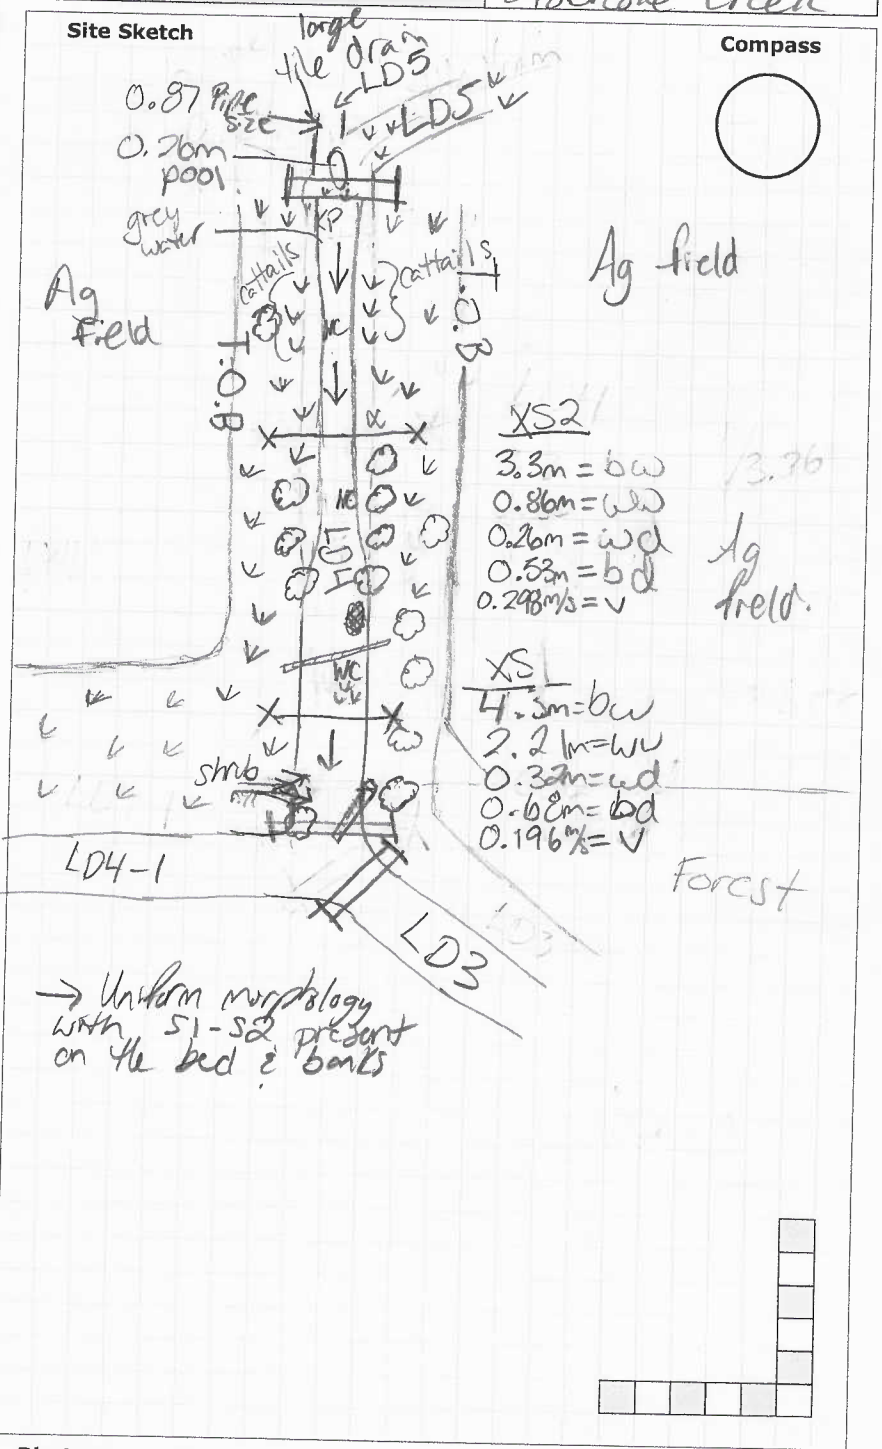 Creek
Site Sketch
Compass
large
tile drain
LD5
0.87 Pipe
size
LD5
0.26m
pool
KP
grey
water
cattails
cattails
Ag field
Ag
Field
T.O.B
T.O.B
WC
XS2
3.3m = bw
0.86m = ww
0.26m = wd
0.53m = bd
0.298m/s = v
Ag
field.
LD4
WC
XS1
4.3m = bw
2.21m = ww
0.32m = wd
0.68m = bd
0.196m/s = v
shrub
LD4-1
Forest
LD3
LD3
→ Uniform morphology
with S1-S2 present
on the bed & banks